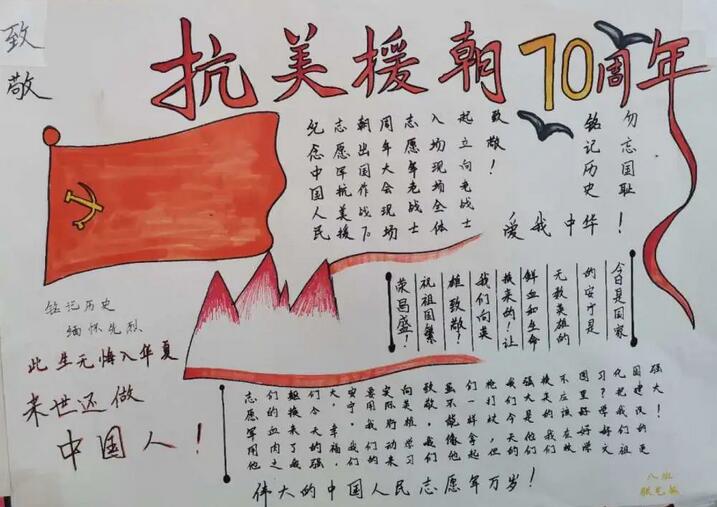 致敬
抗美援朝70周年
勿忘国耻
铭记历史
爱我中华！
纪念中国人民
志愿军抗美援
朝出国作战70
周年大会现场
志愿军老战士
入场现场全体
起立向老战士
致敬！
今日是国家
的安宁是
无数英雄的
鲜血和生命
换来的！让
我们向英
雄致敬！
祝祖国繁
荣昌盛！
铭记历史
缅怀先烈
此生无悔入华夏
来世还做
中国人！
志愿军用他
们的血肉之
躯换来了我
们今天的强
大，幸福，
安宁，我们
要用我们的
实际行动来
向英雄学习
致敬，我们
虽不能像他
们一样拿起
枪打仗，但
我们今天的
强大是他们
换来的我们
不应该在校
园里好好学
习？学好文
化把我们祖
国建设的更
强大！
伟大的中国人民志愿军万岁！
八班